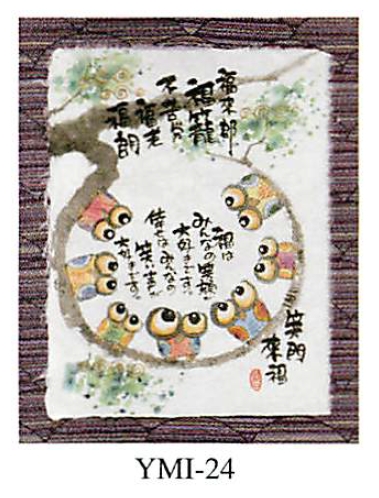 福來郎
福籠
不苦労
福老
福朗
福は
みんなの笑顔が
大好きです。
倖せはみんなの
笑い声が
大好きです。
笑門
來福
YMI-24